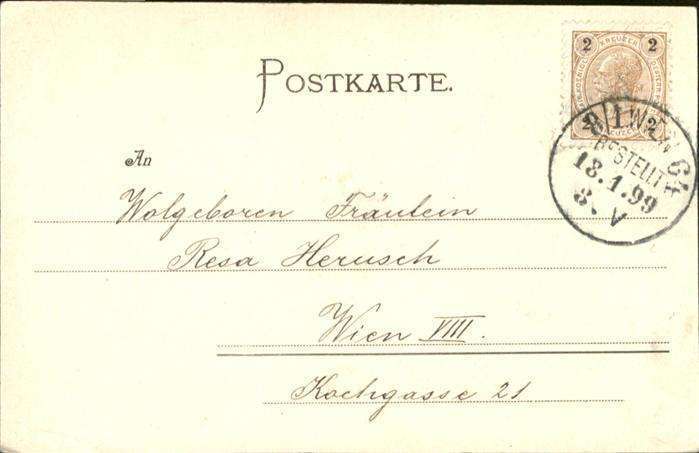 POSTKARTE.
2 KREUZER 2
2 1 2
WIEN
BESTELLT
18.1.99
8.V
An
Wolgeboren Fräulein
Resa Herusch
Wien VIII.
Kochgasse 21